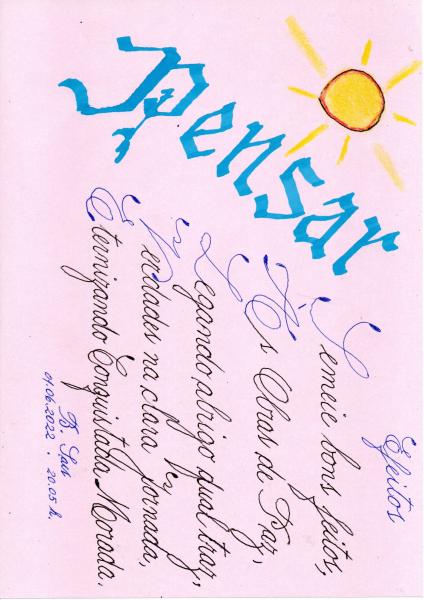 Pensar
Efeitos
Semeie bons feitos,
As Obras de Paz,
Legando abrigo qual traz,
Verdades na clara jornada,
Eternizando Conquistada Morada.
01.06.2022 . 20.05 h.